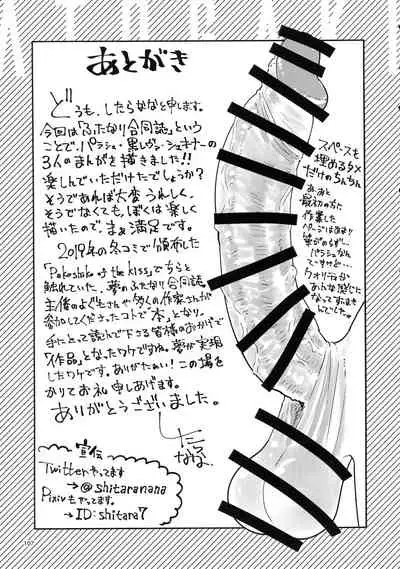 ATOGAKI
あとがき
どうも、したらななと申します。
今回は「ふたなり合同誌」という
ことで、パラシュ・黒レザン・シュキナーの
3人のまんがを描きました!!
楽しんでいただけたでしょうか?
そうであれば大変うれしく、
そうでなくても、ぼくは楽しく
描いたので、まぁ満足です。
2019年の冬コミで頒布した
「Pakoshoko of the kiss」でちらと
触れていた、夢のふたなり合同誌。
主催のよどもさんや多くの作家さんが
参加してくださったコトで「本」となり、
手にとって読んで下さる皆様のおかげで
「作品」となったワケですね。夢が実現
したワケです。ありがたい!この場を
かりてお礼申しあげます。
ありがとうございました。
したらなな
スペースを
埋めるタメ
だけのちんちん
あぁあと
最初の方に
作業した
ページはあまり
筆がのらず…
パラシュなん
ですけど…
クオリティが
あんな感じに
なってすいませ
んでした。
宣伝
Twitterやってます
→@shitaranana
Pixivもやってます。
→ID:shitara7